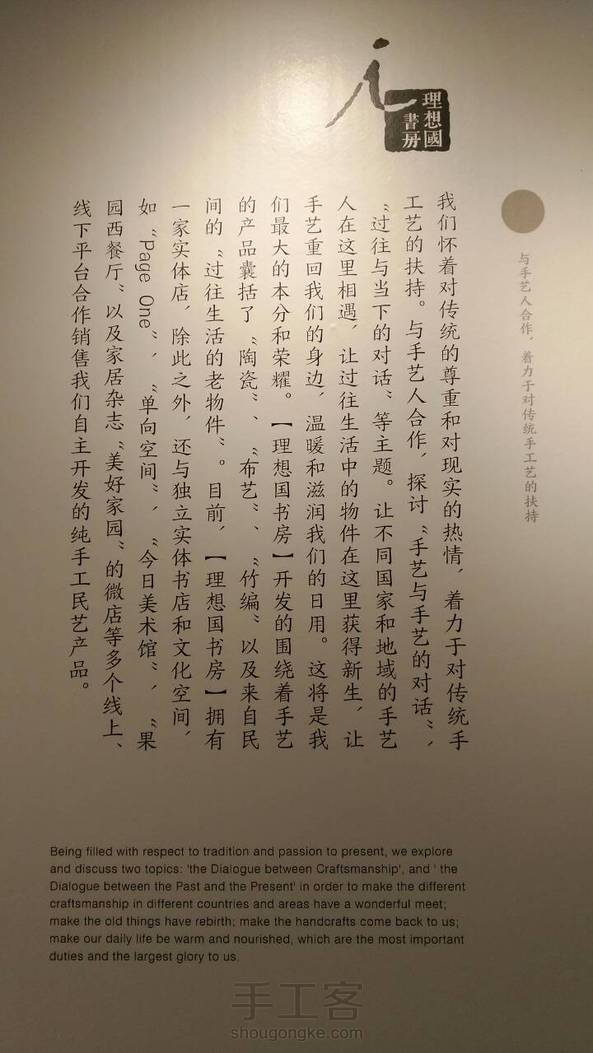 i
理想國
書房
与手艺人合作，着力于对传统手工艺的扶持
我们怀着对传统的尊重和对现实的热情，着力于对传统手
工艺的扶持。与手艺人合作，探讨“手艺与手艺的对话”，
“过往与当下的对话”等主题。让不同国家和地域的手艺
人在这里相遇，让过往生活中的物件在这里获得新生，让
手艺重回我们的身边，温暖和滋润我们的日用。这将是我
们最大的本分和荣耀。【理想国书房】开发的围绕着手艺
的产品囊括了“陶瓷”、“布艺”、“竹编”以及来自民
间的“过往生活的老物件”。目前，【理想国书房】拥有
一家实体店，除此之外，还与独立实体书店和文化空间，
如“Page One”，“单向空间”，“今日美术馆”，“果
园西餐厅”以及家居杂志“美好家园”的微店等多个线上、
线下平台合作销售我们自主开发的纯手工民艺产品。
Being filled with respect to tradition and passion to present, we explore
and discuss two topics: 'the Dialogue between Craftsmanship', and ' the
Dialogue between the Past and the Present' in order to make the different
craftsmanship in different countries and areas have a wonderful meet;
make the old things have rebirth; make the handcrafts come back to us;
make our daily life be warm and nourished, which are the most important
duties and the largest glory to us.
手工客
shougongke.com